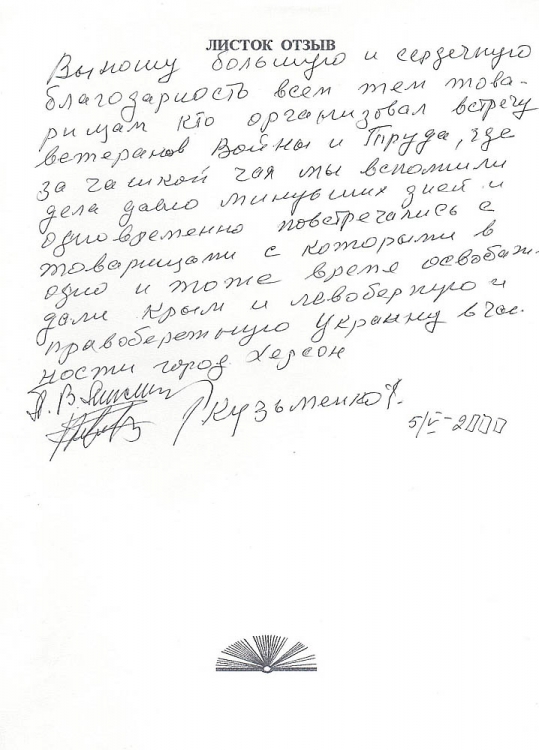 ЛИСТОК ОТЗЫВ
Выношу большую и сердечную
благодарность всем тем това-
рищам кто организовал встречу
ветеранов Войны и Труда, где
за чашкой чая мы вспомнили
дела давно минувших дней и
одновременно повстречались с
товарищами с которыми в
одно и тоже время освобаж-
дали Крым и левобержную и
правобережную Украину в час-
ности город Херсон
П. В.
Кузьменко
5/V-2000